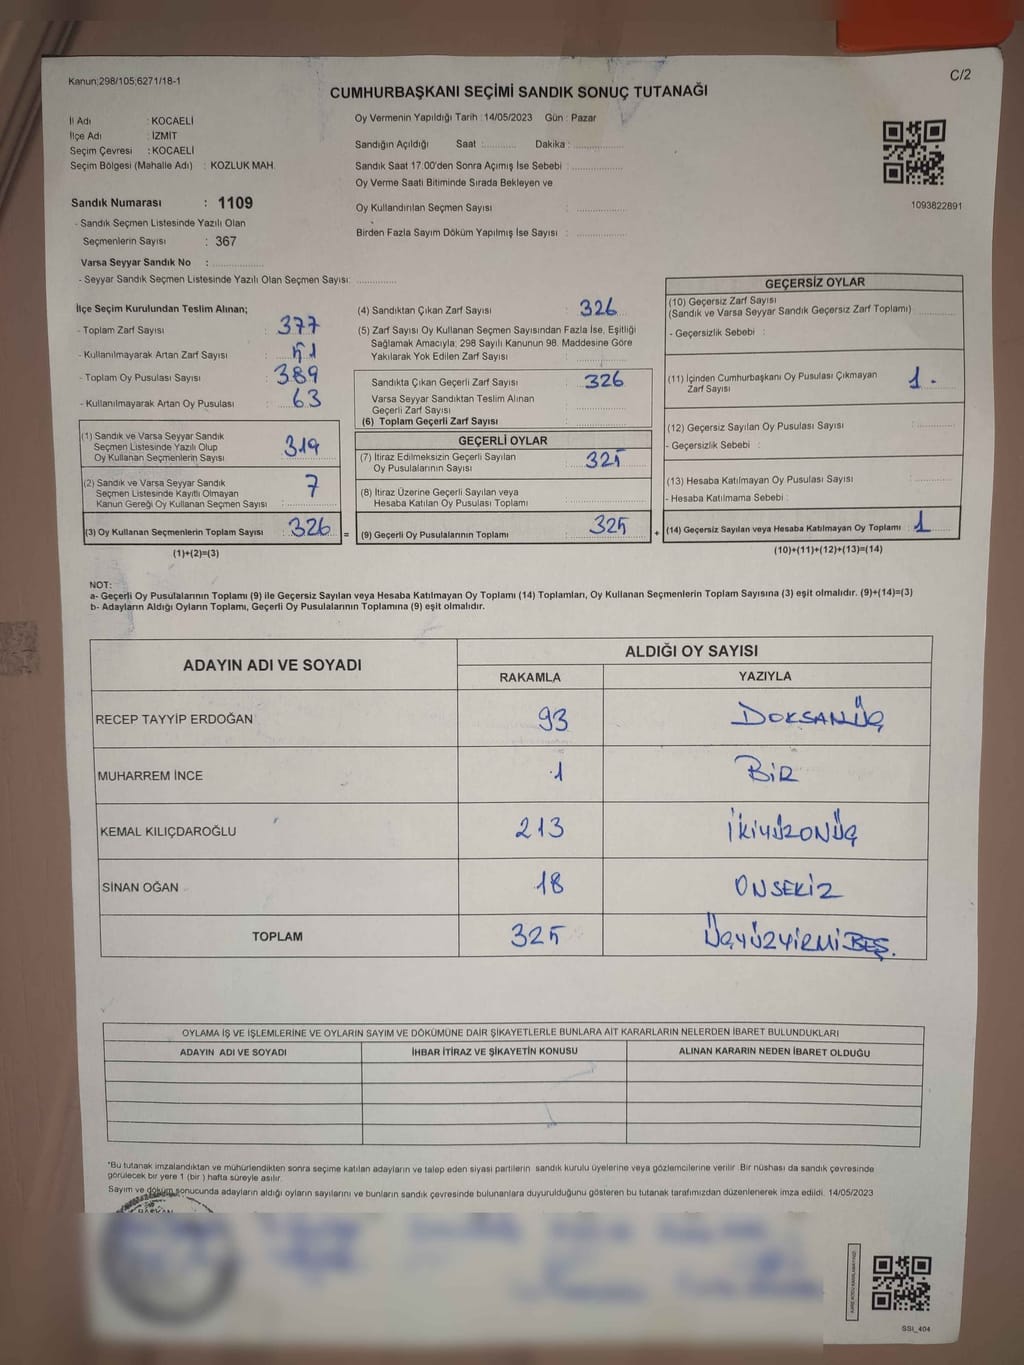 Kanun;298/105;6271/18-1
C/2
CUMHURBAŞKANI SEÇİMİ SANDIK SONUÇ TUTANAĞI
İl Adı : KOCAELİ
İlçe Adı : İZMİT
Seçim Çevresi : KOCAELİ
Seçim Bölgesi (Mahalle Adı) : KOZLUK MAH.
Sandık Numarası : 1109
- Sandık Seçmen Listesinde Yazılı Olan
Seçmenlerin Sayısı : 367
Varsa Seyyar Sandık No : ..............
- Seyyar Sandık Seçmen Listesinde Yazılı Olan Seçmen Sayısı: ..............
Oy Vermenin Yapıldığı Tarih : 14/05/2023 Gün : Pazar
Sandığın Açıldığı Saat :.......... Dakika : ..............
Sandık Saat 17.00'den Sonra Açımış İse Sebebi : ..............
Oy Verme Saati Bitiminde Sırada Bekleyen ve
Oy Kullandırılan Seçmen Sayısı : ..............
Birden Fazla Sayım Döküm Yapılmış İse Sayısı : ..............
1093822891
İlçe Seçim Kurulundan Teslim Alınan;
- Toplam Zarf Sayısı : 377
- Kullanılmayarak Artan Zarf Sayısı : 51
- Toplam Oy Pusulası Sayısı : 389
- Kullanılmayarak Artan Oy Pusulası : 63
(1) Sandık ve Varsa Seyyar Sandık
Seçmen Listesinde Yazılı Olup
Oy Kullanan Seçmenlerin Sayısı : 319
(2) Sandık ve Varsa Seyyar Sandık
Seçmen Listesinde Kayıtlı Olmayan
Kanun Gereği Oy Kullanan Seçmen Sayısı : 7
(3) Oy Kullanan Seçmenlerin Toplam Sayısı : 326 =
(1)+(2)=(3)
(4) Sandıktan Çıkan Zarf Sayısı : 326
(5) Zarf Sayısı Oy Kullanan Seçmen Sayısından Fazla İse, Eşitliği
Sağlamak Amacıyla; 298 Sayılı Kanunun 98. Maddesine Göre
Yakılarak Yok Edilen Zarf Sayısı : ..............
Sandıkta Çıkan Geçerli Zarf Sayısı : 326
Varsa Seyyar Sandıktan Teslim Alınan
Geçerli Zarf Sayısı : ..............
(6) Toplam Geçerli Zarf Sayısı : ..............
GEÇERLİ OYLAR
(7) İtiraz Edilmeksizin Geçerli Sayılan
Oy Pusulalarının Sayısı : 325
(8) İtiraz Üzerine Geçerli Sayılan veya
Hesaba Katılan Oy Pusulası Toplamı : ..............
(9) Geçerli Oy Pusulalarının Toplamı : 325 +
GEÇERSİZ OYLAR
(10) Geçersiz Zarf Sayısı
(Sandık ve Varsa Seyyar Sandık Geçersiz Zarf Toplamı) : ..............
- Geçersizlik Sebebi :
(11) İçinden Cumhurbaşkanı Oy Pusulası Çıkmayan
Zarf Sayısı : 1.
(12) Geçersiz Sayılan Oy Pusulası Sayısı : ..............
- Geçersizlik Sebebi :
(13) Hesaba Katılmayan Oy Pusulası Sayısı : ..............
- Hesaba Katılmama Sebebi :
(14) Geçersiz Sayılan veya Hesaba Katılmayan Oy Toplamı : 1
(10)+(11)+(12)+(13)=(14)
NOT:
a- Geçerli Oy Pusulalarının Toplamı (9) ile Geçersiz Sayılan veya Hesaba Katılmayan Oy Toplamı (14) Toplamları, Oy Kullanan Seçmenlerin Toplam Sayısına (3) eşit olmalıdır. (9)+(14)=(3)
b- Adayların Aldığı Oyların Toplamı, Geçerli Oy Pusulalarının Toplamına (9) eşit olmalıdır.
ADAYIN ADI VE SOYADI ALDIĞI OY SAYISI
RAKAMLA YAZIYLA
RECEP TAYYİP ERDOĞAN 93 DOKSANÜÇ
MUHARREM İNCE 1 BİR
KEMAL KILIÇDAROĞLU 213 İKİYÜZONÜÇ
SİNAN OĞAN 18 ONSEKİZ
TOPLAM 325 ÜÇYÜZYİRMİBEŞ.
OYLAMA İŞ VE İŞLEMLERİNE VE OYLARIN SAYIM VE DÖKÜMÜNE DAİR ŞİKAYETLERLE BUNLARA AİT KARARLARIN NELERDEN İBARET BULUNDUKLARI
ADAYIN ADI VE SOYADI İHBAR İTİRAZ VE ŞİKAYETİN KONUSU ALINAN KARARIN NEDEN İBARET OLDUĞU
*Bu tutanak imzalandıktan ve mühürlendikten sonra seçime katılan adayların ve talep eden siyasi partilerin sandık kurulu üyelerine veya gözlemcilerine verilir. Bir nüshası da sandık çevresinde
görülecek bir yere 1 (bir) hafta süreyle asılır.
Sayım ve döküm sonucunda adayların aldığı oyların sayılarını ve bunların sandık çevresinde bulunanlara duyurulduğunu gösteren bu tutanak tarafımızdan düzenlenerek imza edildi. 14/05/2023
BAŞKAN
SSI_404